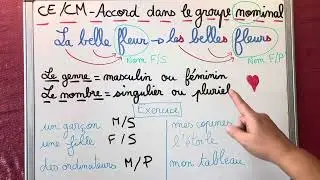 CE/CM-Accord dans le groupe nominal
La belle fleur → les belles fleurs
Nom F/S Nom F/P
Le genre = masculin ou féminin
Le nombre = singulier ou pluriel
Exercice
un garçon M/S mes copines
une fille F/S l'étoile
des ordinateurs M/P mon tableau